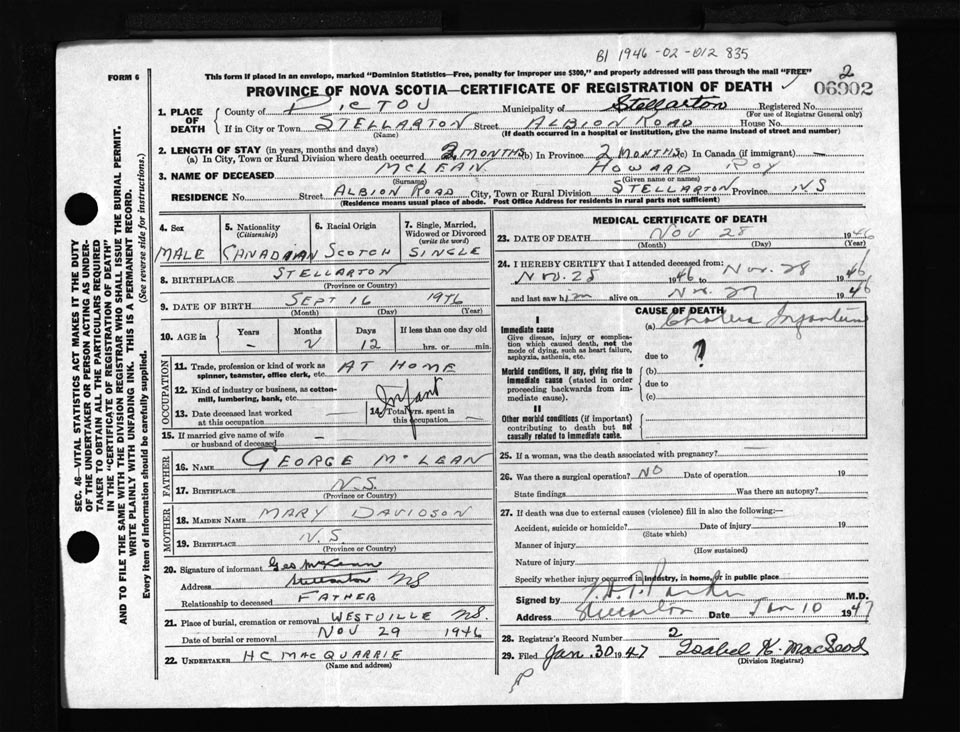 B1 1946-02-012 835
FORM 6
This form if placed in an envelope, marked "Dominion Statistics—Free, penalty for improper use $300," and properly addressed will pass through the mail "FREE"
2
PROVINCE OF NOVA SCOTIA—CERTIFICATE OF REGISTRATION OF DEATH
06902
1. PLACE OF DEATH
County of PICTOU Municipality of Stellarton Registered No.
(For use of Registrar General only)
If in City or Town STELLARTON Street ALBION ROAD House No.
(Name) (If death occurred in a hospital or institution, give the name instead of street and number)
2. LENGTH OF STAY (in years, months and days)
(a) In City, Town or Rural Division where death occurred 2 MONTHS (b) In Province 2 MONTHS (c) In Canada (if immigrant) —
3. NAME OF DECEASED McLEAN HOWARD ROY
(Surname) (Given name or names)
RESIDENCE No. Street ALBION ROAD City, Town or Rural Division STELLARTON Province N.S
(Residence means usual place of abode. Post Office Address for residents in rural parts not sufficient)
4. Sex
MALE
5. Nationality
(Citizenship)
CANADIAN
6. Racial Origin
SCOTCH
7. Single, Married, Widowed or Divorced
(write the word)
SINGLE
8. BIRTHPLACE STELLARTON
(Province or Country)
9. DATE OF BIRTH SEPT 16 1946
(Month) (Day) (Year)
10. AGE in Years Months Days If less than one day old
— 2 12 hrs. or min.
OCCUPATION
11. Trade, profession or kind of work as spinner, teamster, office clerk, etc. AT HOME
12. Kind of industry or business, as cotton-mill, lumbering, bank, etc. Infant
13. Date deceased last worked at this occupation —
14. Total yrs. spent in this occupation —
15. If married give name of wife or husband of deceased —
FATHER
16. NAME GEORGE McLEAN
17. BIRTHPLACE N.S.
(Province or Country)
MOTHER
18. MAIDEN NAME MARY DAVIDSON
19. BIRTHPLACE N.S.
(Province or Country)
20. Signature of informant Geo
Address Stellarton NS
Relationship to deceased FATHER
21. Place of burial, cremation or removal WESTVILLE NS.
Date of burial or removal NOV 29 1946
22. UNDERTAKER H C MACQUARRIE
(Name and address)
MEDICAL CERTIFICATE OF DEATH
23. DATE OF DEATH NOV 28 1946
(Month) (Day) (Year)
24. I HEREBY CERTIFY that I attended deceased from:
Nov. 28 1946 to Nov. 28 1946
and last saw him alive on Nov. 27 1946
CAUSE OF DEATH
I
Immediate cause
Give disease, injury or complication which caused death, not the mode of dying, such as heart failure, asphyxia, asthenia, etc.
(a) Cholera Infantum
due to ?
Morbid conditions, if any, giving rise to immediate cause (stated in order proceeding backwards from immediate cause).
(b)
due to
(c)
II
Other morbid conditions (if important) contributing to death but not causally related to immediate cause.
25. If a woman, was the death associated with pregnancy?
26. Was there a surgical operation? NO Date of operation 19
State findings Was there an autopsy?
27. If death was due to external causes (violence) fill in also the following:—
Accident, suicide or homicide? Date of injury 19
(State which)
Manner of injury
(How sustained)
Nature of injury
Specify whether injury occurred in industry, in home, or in public place
Signed by M.D.
Address Stellarton Date Jan 10 1947
28. Registrar's Record Number 2
29. Filed Jan. 30 1947 Isabel K. MacLeod
(Division Registrar)
SEC. 46—VITAL STATISTICS ACT MAKES IT THE DUTY
OF THE UNDERTAKER OR PERSON ACTING AS UNDER-
TAKER TO OBTAIN ALL THE PARTICULARS REQUIRED
IN THE "CERTIFICATE OF REGISTRATION OF DEATH"
AND TO FILE THE SAME WITH THE DIVISION REGISTRAR WHO SHALL ISSUE THE BURIAL PERMIT.
WRITE PLAINLY WITH UNFADING INK. THIS IS A PERMANENT RECORD.
Every item of information should be carefully supplied. (See reverse side for instructions.)